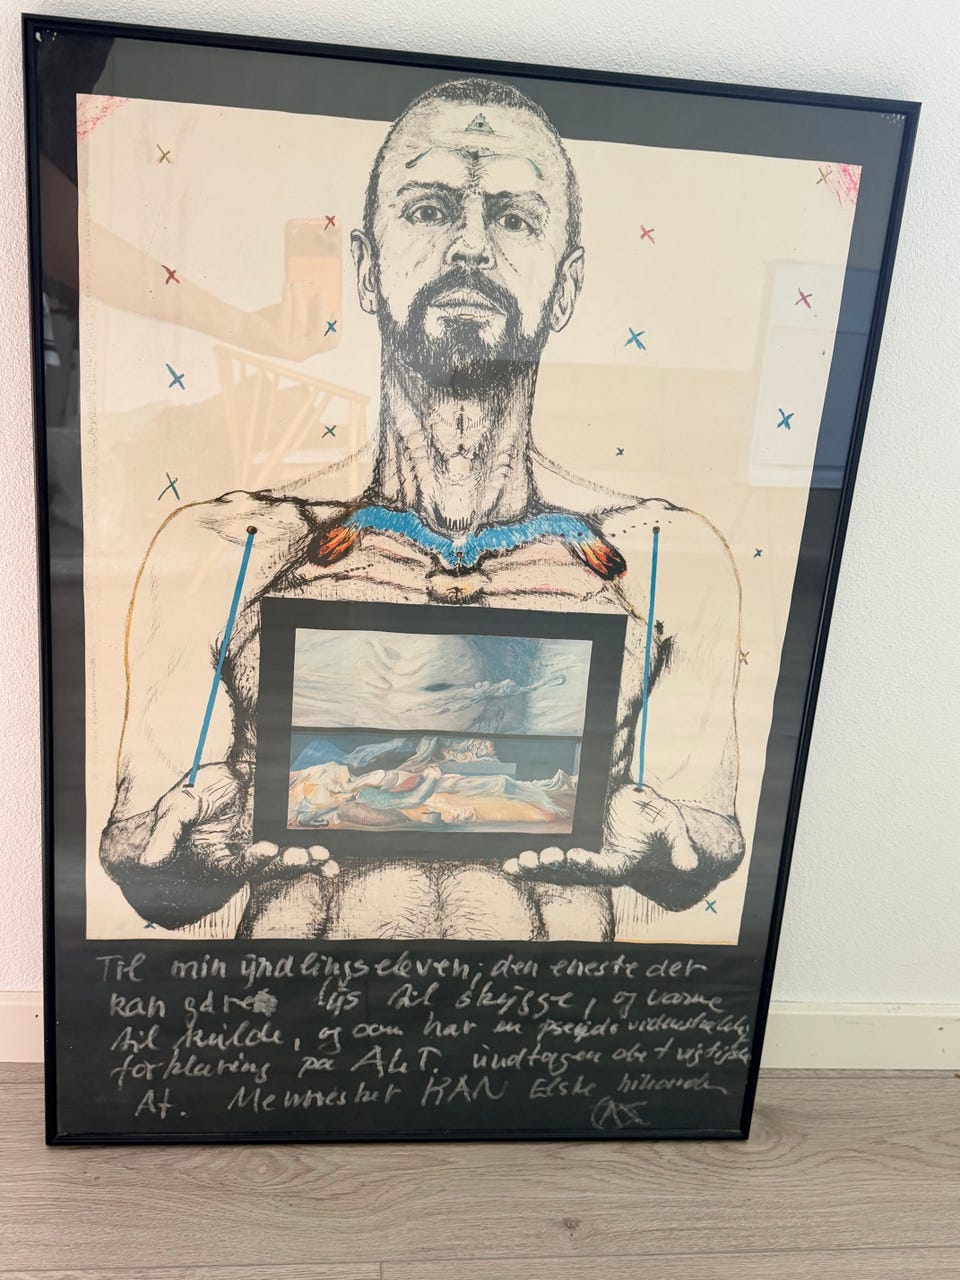 Til min yndlingseleven; den eneste der
kan gøre lys til skygge, og varme
til kulde, og som har en pseudovidenskabelig
forklaring på ALT. undtagen det vigtigste
At. Mennesket KAN Elske hinanden